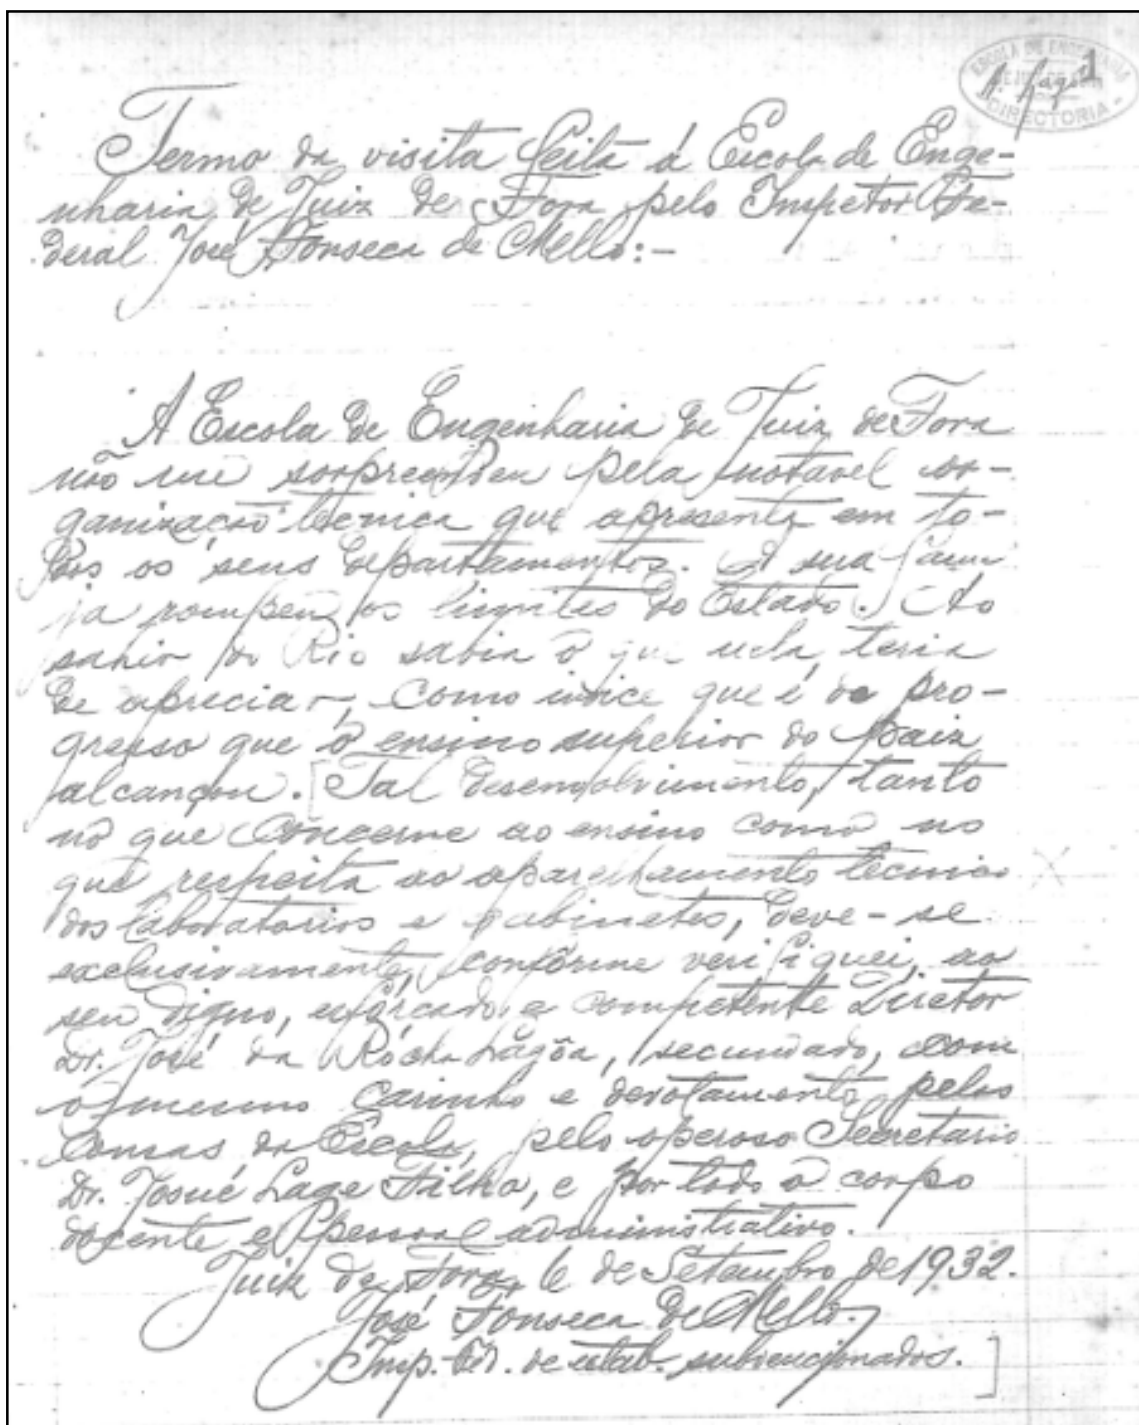 ESCOLA DE ENGENHARIA
DE JUIZ DE FORA
DIRECTORIA
1
Termo da visita feita á Escola de Enge-
nharia de Juiz de Fora pelo Inspetor Fe-
deral José Fonseca de Mello:-
A Escola de Engenharia de Juiz de Fora
não me sorpreendeu pela notavel or-
ganização tecnica que apresenta em to-
dos os seus departamentos. A sua fama
ja rompeu os limites do Estado. Ao
sahir do Rio sabia o que nela teria
de apreciar, como indice que é do pro-
gresso que o ensino superior do paiz
alcançou. [Tal desenvolvimento, tanto
no que concerne ao ensino como no
que respeita ao aparelhamento tecnico
dos laboratorios e gabinetes, deve-se
exclusivamente, confórme verifiquei, ao
seu digno, esforçado e competente Diretor
Dr. José da Rocha Lagôa, secundado, com
o mesmo carinho e devotamento pelas
cousas da Escola, pelo operoso Secretario
Dr. Josué Lage Filho, e por todo o corpo
docente e pessoal administrativo.
Juiz de Fora, 6 de Setembro de 1932.
José Fonseca de Mello.
Insp. Fed. de estab. subvencionados.]